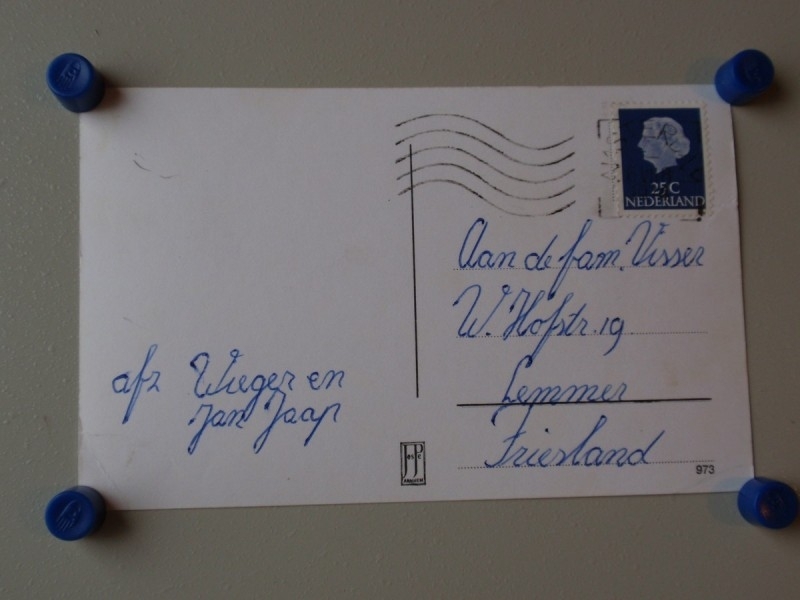 25 C
NEDERLAND
Aan de fam. Visser
W. Hofstr. 19
Lemmer
Friesland
afz Wieger en
Jan Jaap
JosPé
ARNHEM
973